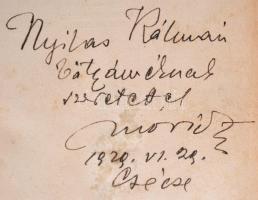 Nyilas Kálmán
bátyáméknak
szeretettel
Móricz
1929. VI. 29.
Csécse